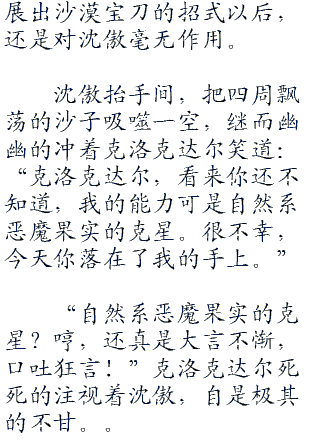 展出沙漠宝刀的招式以后，
还是对沈傲毫无作用。
沈傲抬手间，把四周飘
荡的沙子吸噬一空，继而幽
幽的冲着克洛克达尔笑道：
“克洛克达尔，看来你还不
知道，我的能力可是自然系
恶魔果实的克星。很不幸，
今天你落在了我的手上。”
“自然系恶魔果实的克
星？哼，还真是大言不渐，
口吐狂言！”克洛克达尔死
死的注视着沈傲，自是极其
的不甘。。